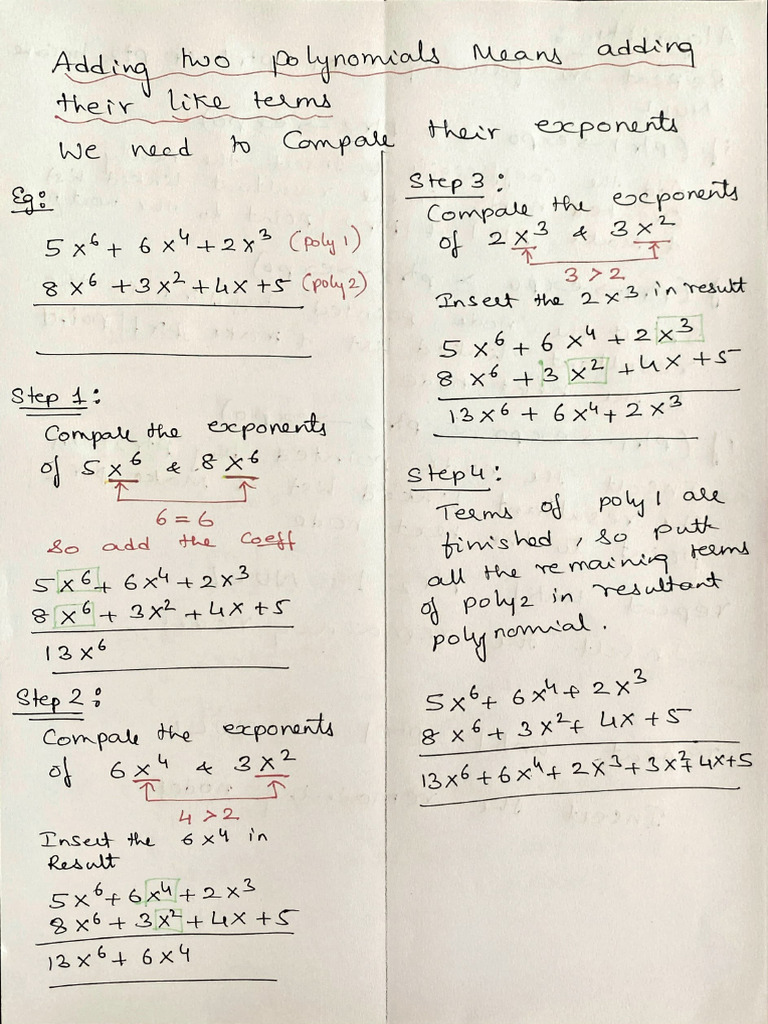 Adding two polynomials Means adding
their like terms
We need to Compare their exponents
Eg:
5x⁶ + 6x⁴ + 2x³ (poly 1)
8x⁶ + 3x² + 4x + 5 (poly 2)
Step 1:
Compare the exponents
of 5x⁶ & 8x⁶
6 = 6
So add the Coeff
5x⁶ + 6x⁴ + 2x³
8x⁶ + 3x² + 4x + 5
13x⁶
Step 2:
Compare the exponents
of 6x⁴ & 3x²
4 > 2
Insert the 6x⁴ in
Result
5x⁶ + 6x⁴ + 2x³
8x⁶ + 3x² + 4x + 5
13x⁶ + 6x⁴
Step 3:
Compare the exponents
of 2x³ & 3x²
3 > 2
Insert the 2x³ in result
5x⁶ + 6x⁴ + 2x³
8x⁶ + 3x² + 4x + 5
13x⁶ + 6x⁴ + 2x³
Step 4:
Terms of poly 1 are
finished, so putt
all the remaining terms
of poly2 in resultant
polynomial.
5x⁶ + 6x⁴ + 2x³
8x⁶ + 3x² + 4x + 5
13x⁶ + 6x⁴ + 2x³ + 3x² + 4x + 5